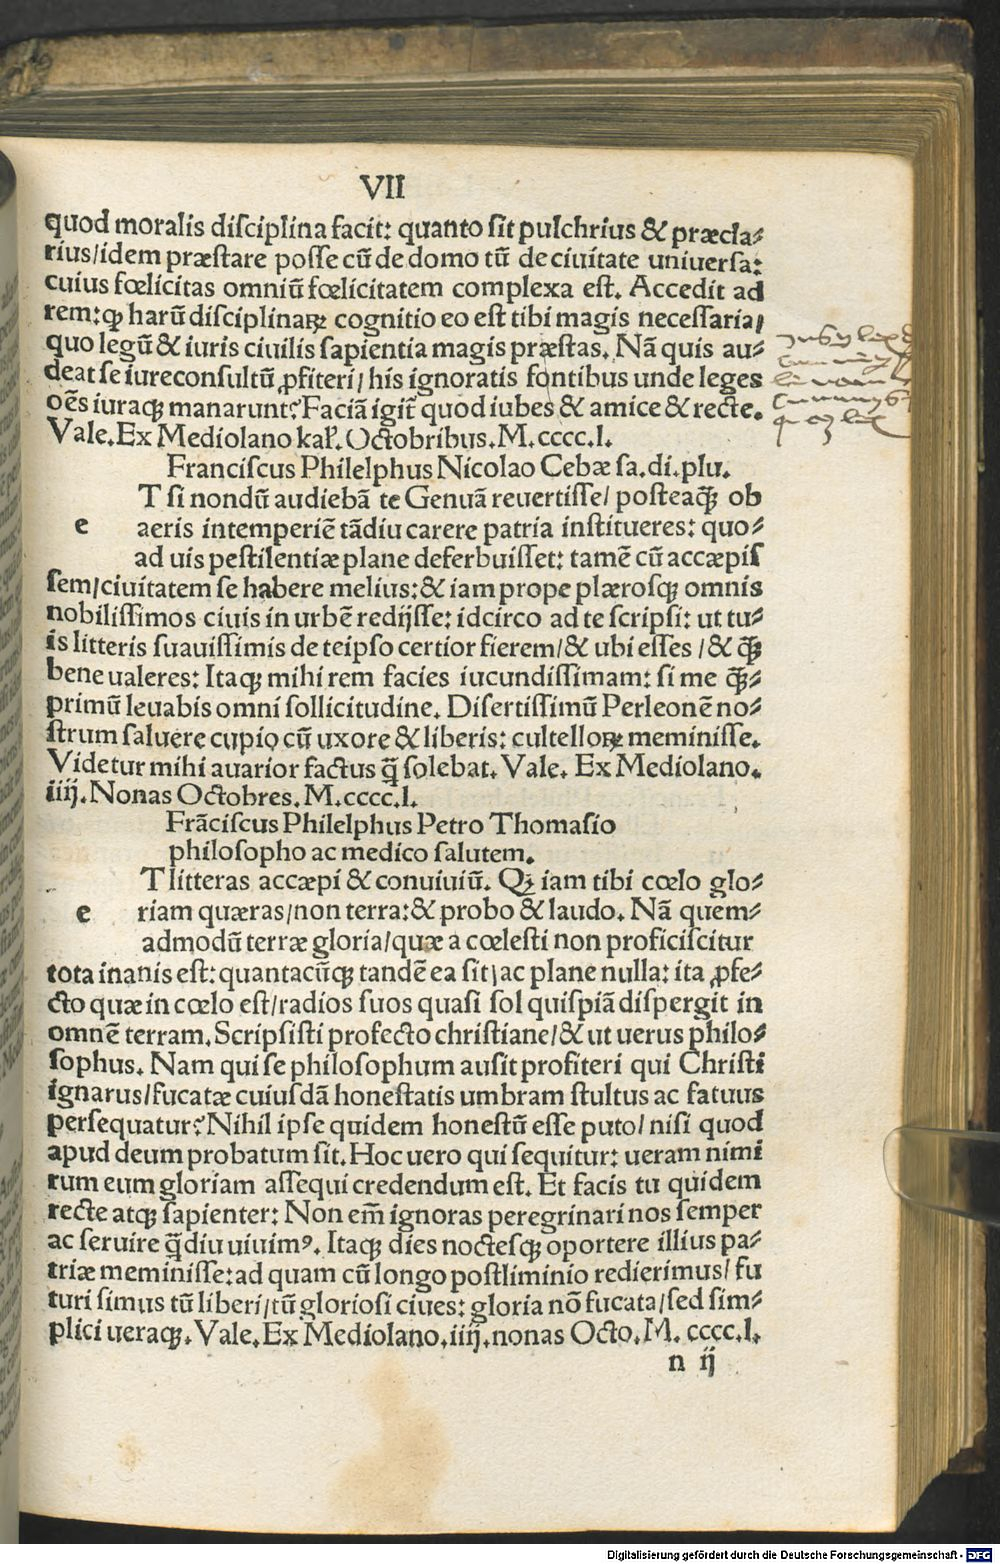 VII
quod moralis diſciplina facit: quanto ſit pulchrius & præcla⸗
rius/idem præſtare poſſe cū de domo tū de ciuitate uniuerſa:
cuius fœlicitas omniū fœlicitatem complexa eſt. Accedit ad
rem: ꝙ harū diſciplinaꝝ cognitio eo eſt tibi magis neceſſaria/
quo legū & iuris ciuilis ſapientia magis præſtas. Nā quis au⸗
deat ſe iureconſultū ꝓfiteri/ his ignoratis fontibus unde leges
oēs iuraqꝫ manarunt? Faciā igit̄ quod iubes & amice & recte.
Vale. Ex Mediolano kaɫ. Octobribus. M. cccc. l.
Franciſcus Philelphus Nicolao Cebæ ſa. di. plu.
T ſi nondū audiebā te Genuā reuertiſſe/ poſteaꝗ̃ ob
e aeris intemperiē tādiu carere patria inſtitueres: quo⸗
ad uis peſtilentiæ plane deferbuiſſet: tamē cū accæpiſ
ſem/ciuitatem ſe habere melius: & iam prope plæroſqꝫ omnis
nobiliſſimos ciuis in urbē redijſſe: idcirco ad te ſcripſi: ut tu⸗
is litteris ſuauiſſimis de teipſo certior fierem/& ubi eſſes /& ꝗ̃
bene ualeres: Itaqꝫ mihi rem facies iucundiſſimam: ſi me ꝗ̃⸗
primū leuabis omni ſollicitudine. Diſertiſſimū Perleonē no⸗
ſtrum ſaluere cupio cū uxore & liberis: cultelloꝝ meminiſſe.
Videtur mihi auarior factus ꝗ̃ ſolebat. Vale. Ex Mediolano.
iiij. Nonas Octobres. M. cccc. l.
Frāciſcus Philelphus Petro Thomaſio
philoſopho ac medico ſalutem.
T litteras accæpi & conuiuiū. Qꝫ iam tibi cœlo glo⸗
e riam quæras/non terra: & probo & laudo. Nā quem⸗
admodū terræ gloria/quæ a cœleſti non proficiſcitur
tota inanis eſt: quantacūqꝫ tandē ea ſit/ac plane nulla: ita ꝓfe⸗
cto quæ in cœlo eſt/radios ſuos quaſi ſol quiſpiā diſpergit in
omnē terram. Scripſiſti profecto chriſtiane/& ut uerus philo⸗
ſophus. Nam qui ſe philoſophum auſit profiteri qui Chriſti
ignarus/fucatæ cuiuſdā honeſtatis umbram ſtultus ac fatuus
perſequatur? Nihil ipſe quidem honeſtū eſſe puto/ niſi quod
apud deum probatum ſit. Hoc uero qui ſequitur: ueram nimi
rum eum gloriam aſſequi credendum eſt. Et facis tu quidem
recte atqꝫ ſapienter: Non em̄ ignoras peregrinari nos ſemper
ac ſeruire ꝗ̃diu uiuimꝰ. Itaqꝫ dies nocteſqꝫ oportere illius pa⸗
triæ meminiſſe: ad quam cū longo poſtliminio redierimus/ fu
turi ſimus tū liberi/tū glorioſi ciues: gloria nō fucata/ſed ſim⸗
plici ueraqꝫ. Vale. Ex Mediolano. iiij. nonas Octo. M. cccc. l.
n ij
Digitalisierung gefördert durch die Deutsche Forschungsgemeinschaft - DFG